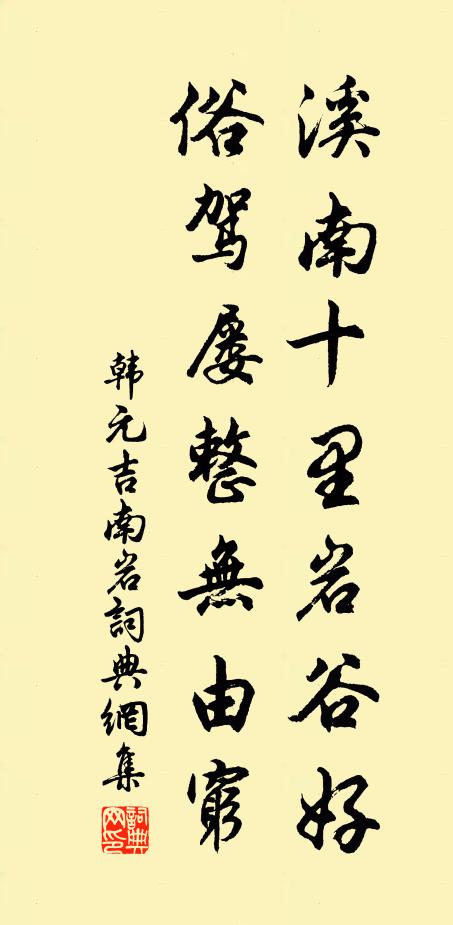 溪南十里岩谷好
俗驾屡整無由窮
韩元吉南岩詞典網集
詞典網印